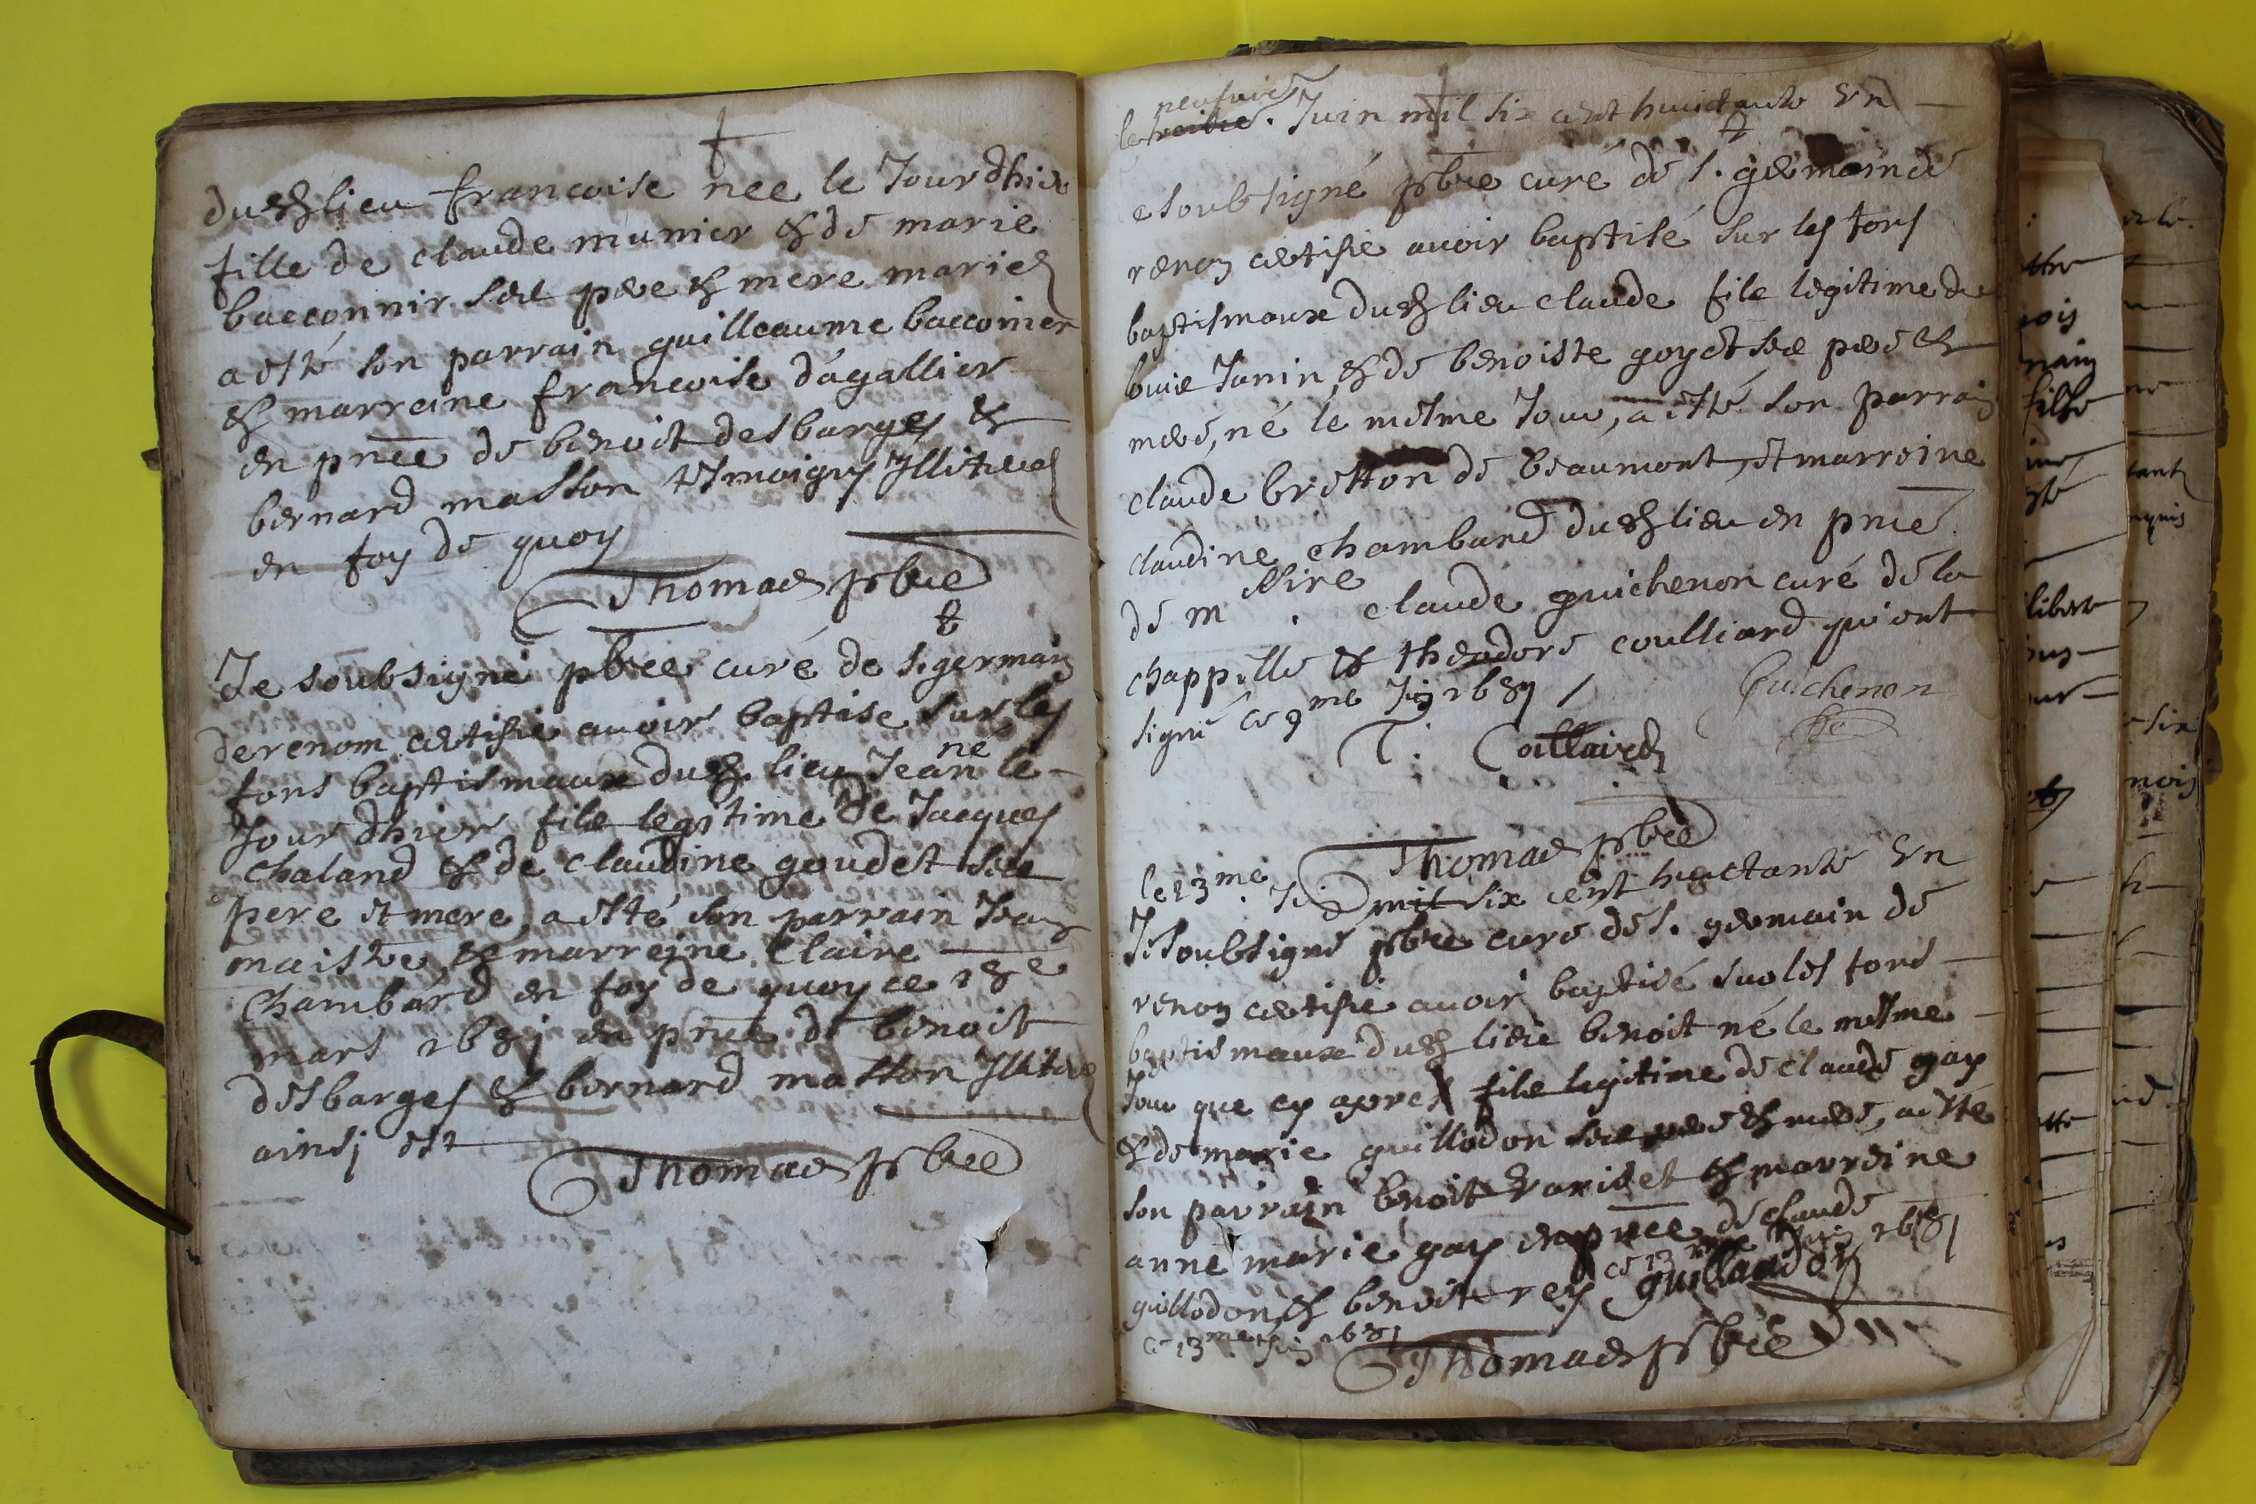 dud lieu francoise nee le Jour dhier
fille de claude munier & de marie
bacconnir ses pere & mere mariez
a esté son parrain guilleaume bacconier
& marreine francoise dagallier
en pnce de benoit desbarges &
bernard masson tesmoigns Illiteres
en foy de quoy
Thomas pbre
Je soubsigné pbre curé de s. germain
de renom certifie avoir baptise sur les
fons baptismaux dud. lieu Jeanne le
Jour dhier file legitime de Jacques
Chaland & de claudine goudet ses
pere et mere, a esté son parrain Jean
maistre & marreine Claire
Chambard en foy de quoy ce 18e
mars 1681 en pnce de benoit
desbarges & bernard masson Illiteres
ainsj est
Thomas pbre
le neufvie. Juin mil six cent huictante Un
e soubsigné pbre curé de s. germain de
renon certifie avoir baptisé sur les fons
baptismaux dud lieu claude fils legitime de
louis Janin & de benoiste goyet ses pere &
mere, né le mesme Jour, a esté son parrain
claude bretton de beaumont, et marreine
claudine chambard dud lieu en pnce
de mssire claude guichenon curé de la
chappelle & theodore coulliard qui ont
signé ce 9me Juin 1681
Guichenon
T. Coillaird
Thomas pbre
le 13me. Juin mil six cent huictante Un
Je soubsigné pbre curé de s. germain de
renon certifie avoir baptisé sur les fons
baptismaux dud lieu benoit né le mesme
Jour que cy apres fils legitime de claude gay
& de marie guillodon ses pere & mere, a esté
son parrain benoit & marreine
anne marie gay en pnce de claude
guillodon & benoit rey ce 13me Juin 1681
guillaudon
ce 13me Juin 1681
Thomas pbre